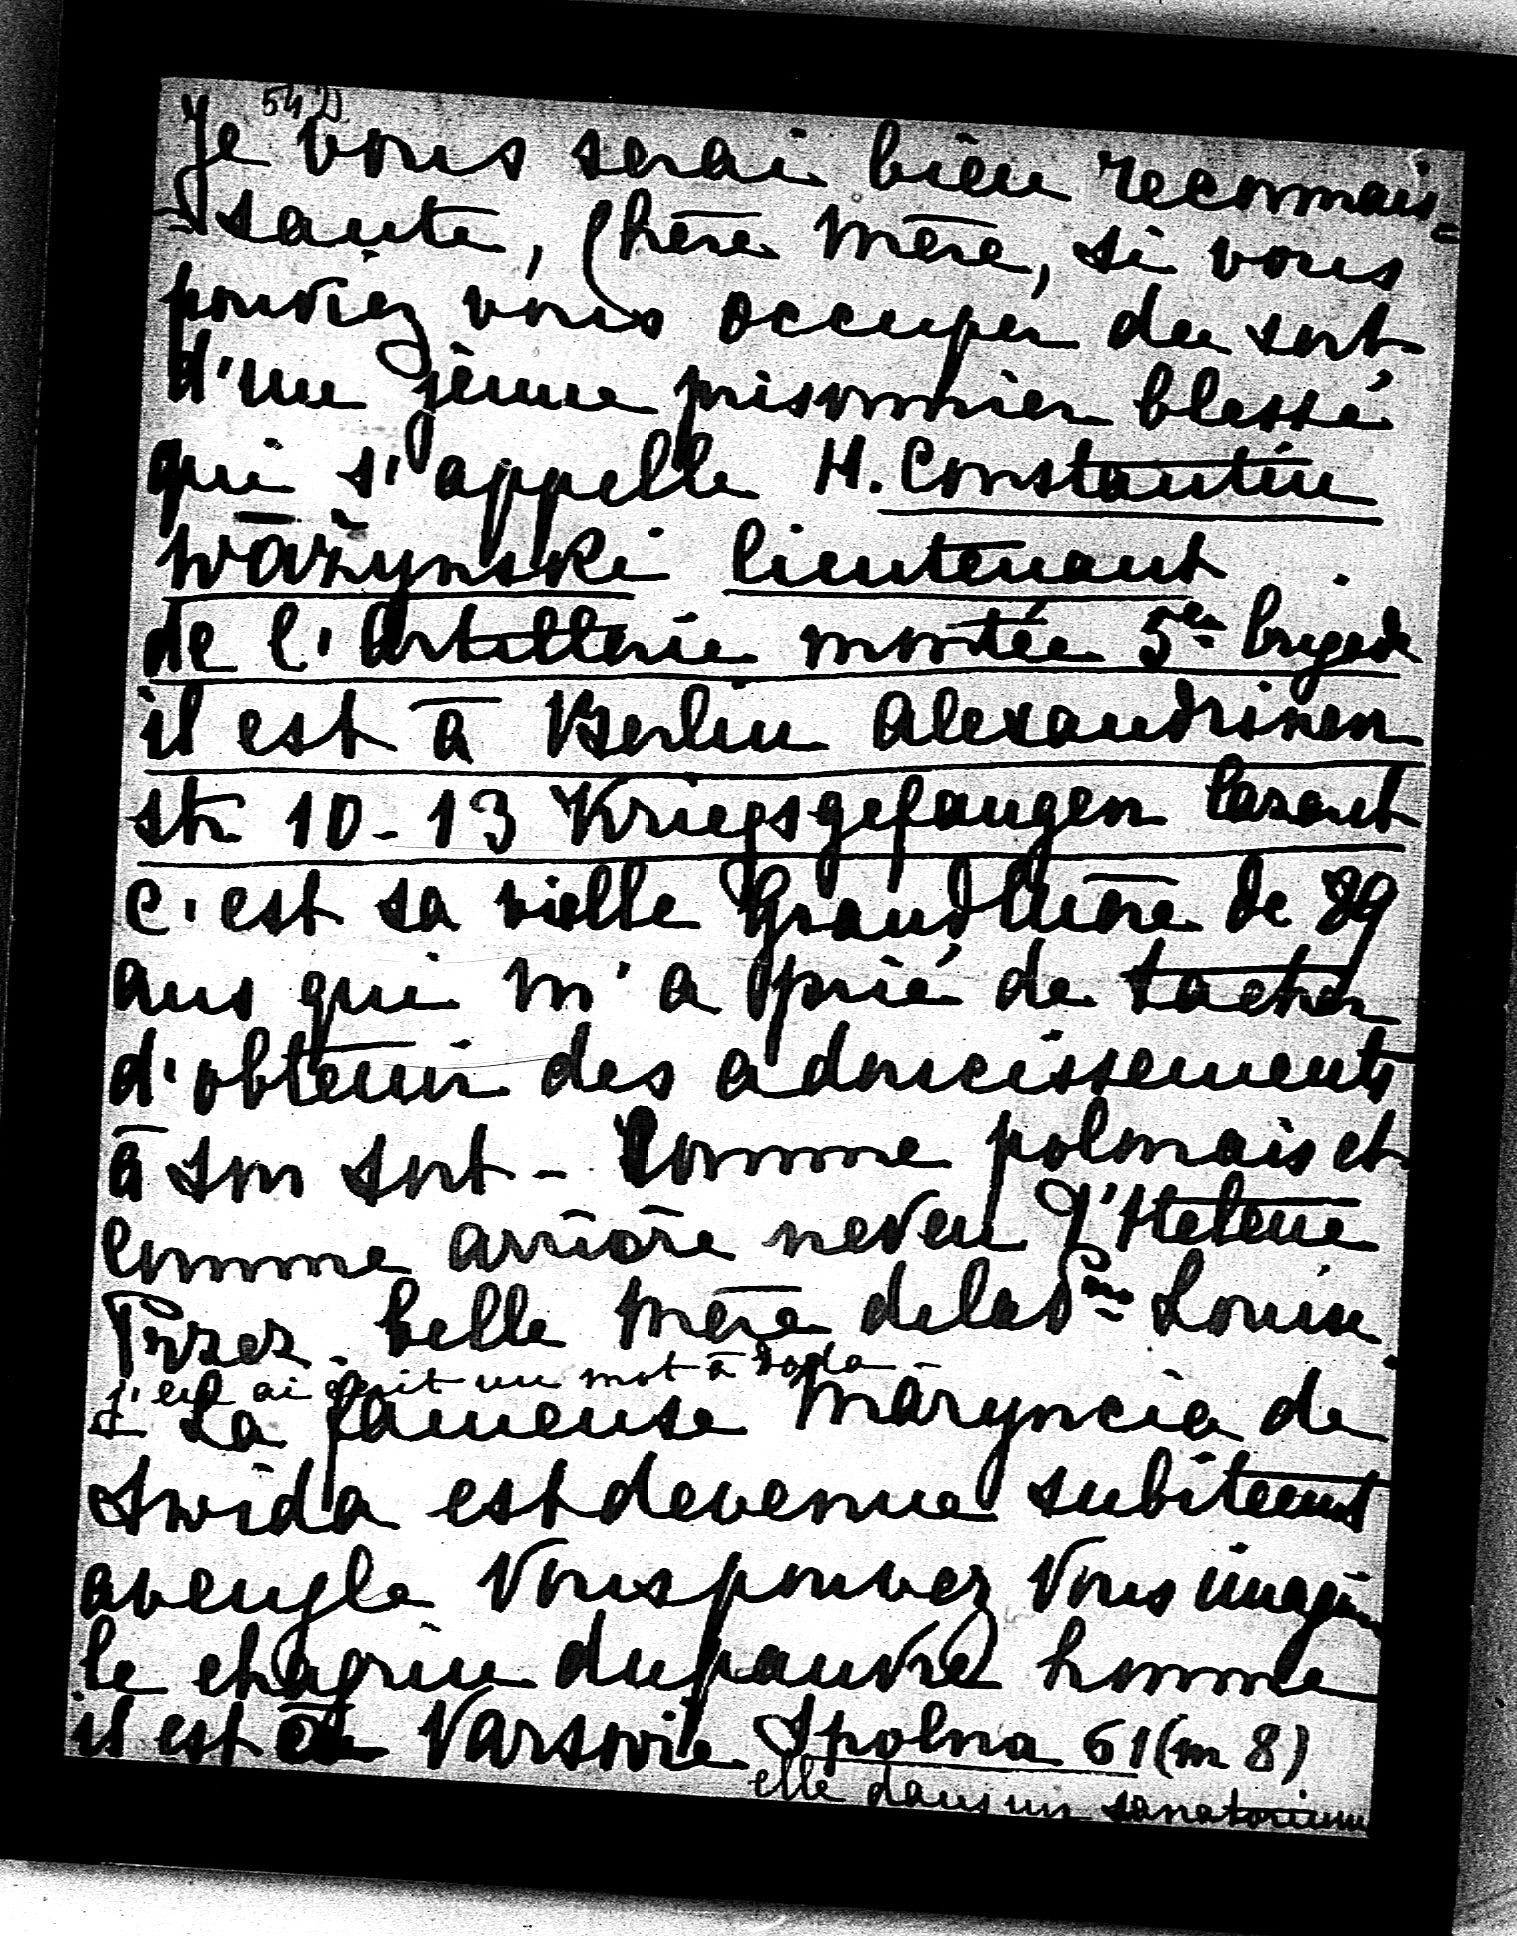 542
Je vous serai bien reconnais-
-sante, Chère Mère, si vous
pouviez vous occuper du sort
d'un jeune prisonnier blessé
qui s'appelle H. Constantin
Ważynski lieutenant
de l'Artillerie montée 5e brigade
il est à Berlin Alexandrinen
str 10-13 Kriegsgefangen Lazaret
c'est sa vielle Grand Mère de 89
ans qui m'a prié de tacher
d'obtenir des adoucissements
à son sort - Comme polonais et
comme arrière neveu d'Helene
Przez. belle mère de la Psse Louise.
j'en ai écrit un mot à
La fameuse Maryncia de
Swida est devenue subitement
aveugle Vous pouvez Vous imaginer
le chagrin du pauvre homme
il est à Varsovie Spolna 61 (m 8)
elle dans un sanatorium